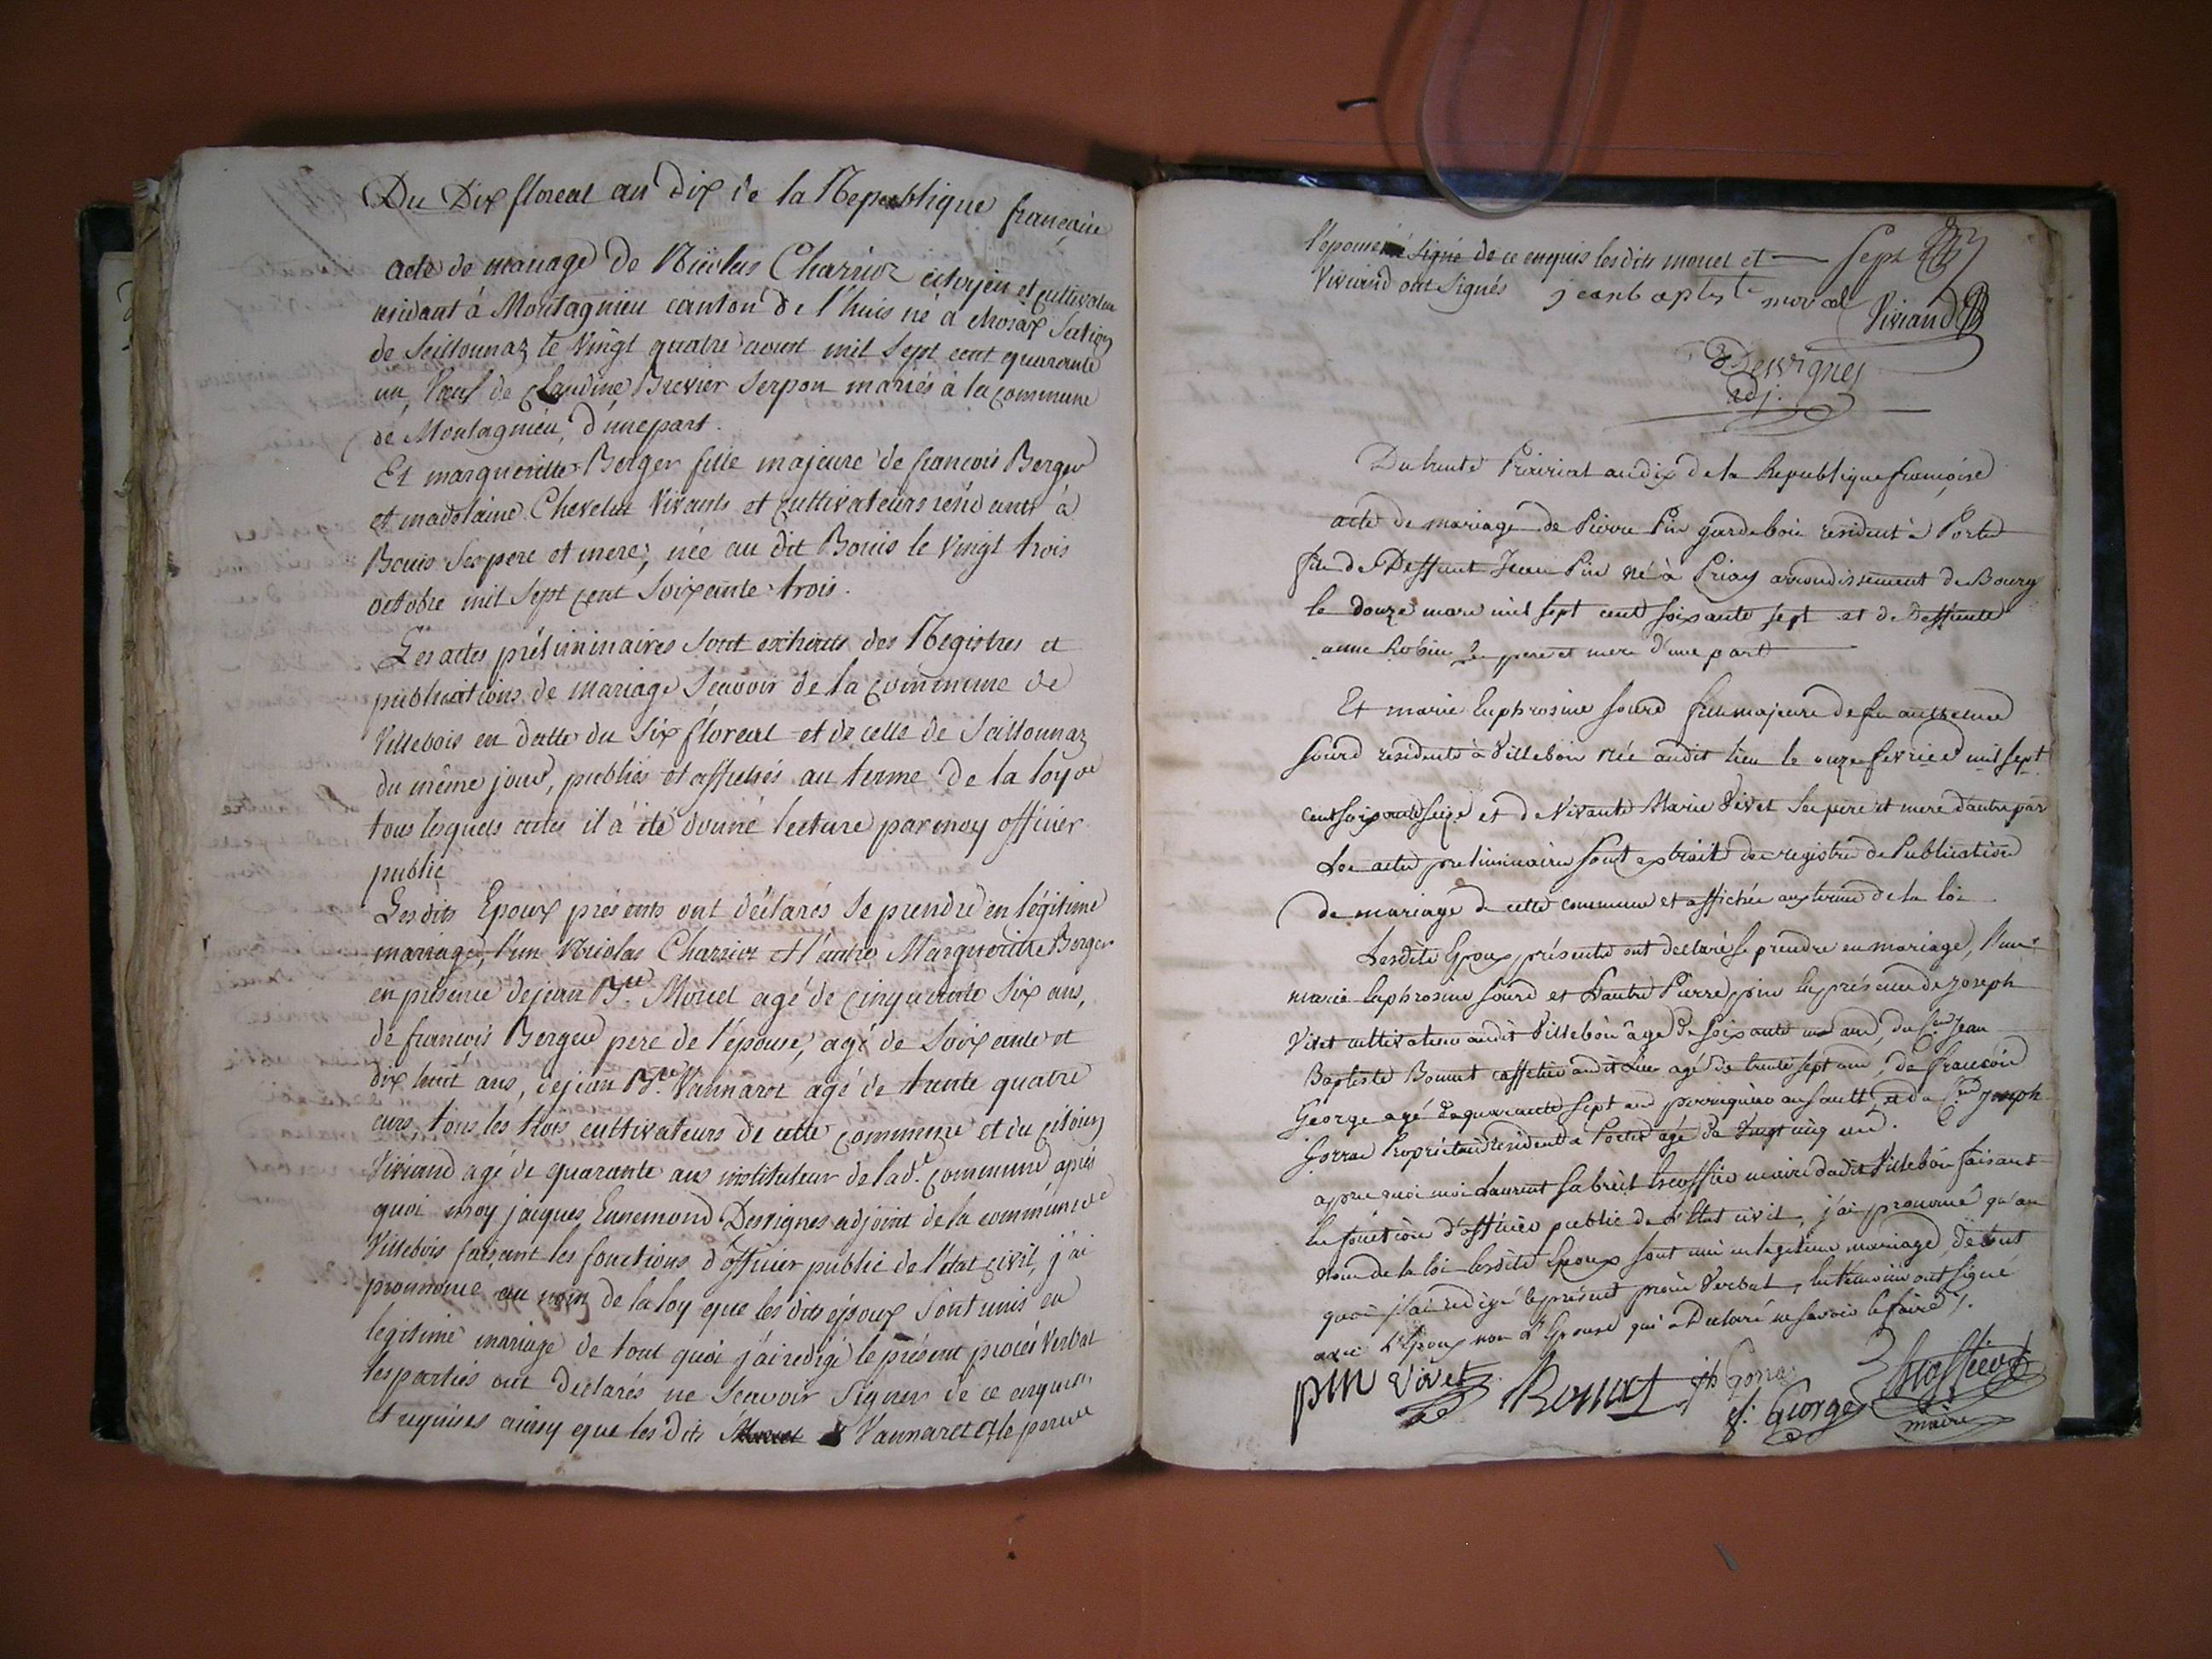 Du Dix floreal an dix de la Republique francaise
acte de mariage de Nicolas Charrier citoyen et cultivateur
residant à Montagnieu canton de l'huis né à chosax Section
de Seillonnaz le vingt quatre aoust mil sept cent quarante
un, Veuf de Claudine Brevier Serpon mariés à la commune
de Montagnieu, d'une part.
Et marguerite Berger fille majeure de francois Berger
et madelaine Chevelut Vivants et cultivateurs résidants à
Bouis ses pere et mere, née au dit Bouis le Vingt trois
octobre mil Sept cent Soixante trois.
Les actes préliminaires sont extraits des Registres et
publications de mariage Scavoir de la commune de
Villebois en datte du Six floreal et de celle de Seillonnaz
du même jour, publiés et affichés au terme de la loy de
tous lesquels actes il à été donné lecture par moy officier
public
Les dits Epoux présents ont déclarés se prendre en légitime
mariage, l'un Nicolas Charrier et l'autre Marguerite Berger
en présence de jean Bte. Morel agé de cinquante Six ans,
de francois Berger pere de l'épouse, agé de Soixante et
dix huit ans, de jean Bte. Vannaret agé de trente quatre
ans, tous les trois cultivateurs de cette commune et du citoien
Viviand agé de quarante ans instituteur de lad.e commune après
quoi moy jacques Ennemond Desvignes adjoint de la commune de
Villebois faisant les fonctions d'officier public de l'état civil, j'ai
prononcé au nom de la loy que les dits époux sont unis en
legitime mariage de tout quoi j'ai redigé le présent procès Verbal
les parties ont declarés ne Scavoir Signer de ce enquis
et requises ainsy que les dits Vannaret et le pere de
l'épouse né Signé de ce enquis les dits morel et Sept
Viviand ont Signés jean baptiste morel Viviand
Desvignes
adj.
Du trente Prairial an dix de la Republique françoise
acte de mariage de Pierre Pin garde bois resident à Porte
fils de Deffunt Jean Pin né à Priay arrondissement de Bourg
le douze mars mil sept cent soixante sept et de Deffunte
anne Robin Se pere et mere d'une part
Et marie Euphrosine sourd fille majeure de feu anthelme
sourd residente à Villebois née audit lieu le onze fevrier mil sept
cent soixante seize et de Vivante Marie Vivet Ses pere et mere d'autre par
Les actes preliminaires sont extraits des registres de Publication
de mariage de cette commune et affichés aux termes de la loi
Lesdits Epoux présents ont declaré se prendre en mariage, l'une
marie Euphrosine sourd et l'autre Pierre pin En présence de Joseph
Vivet cultivateur audit Villebois âgé de soixante un ans, du Cen Jean
Baptiste Bonnet caffetier audit Lieu agé de trente sept ans, de francois
George agé de quarante sept ans perruquier au sault, et du Cen Joseph
Gorraz Propriétaire résident à Porte agé de Vingt cinq ans.
apres quoi moi Laurent Gabriel Escoffier maire dudit Villebois faisant
les fonctions d'officier public de l'Etat civil, j'ai prononcé qu'au
nom de la loi lesdits Epoux sont unis en legitime mariage, de tout
quoi j'ai redigé le présent procès Verbal, les témoins ont signé
avec l'Epoux non l'Epouse qui a Declaré ne savoir le faire.
pin Vivet Bonnet jh Gorra f: George Escoffier
maire